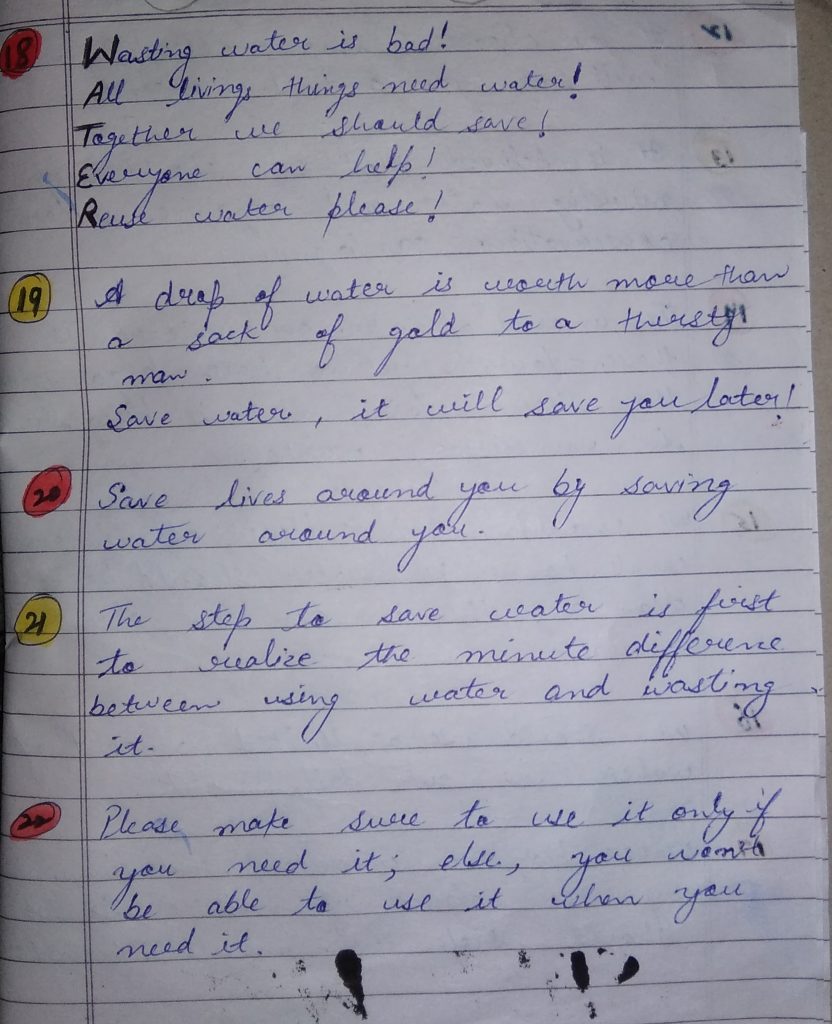 18 Wasting water is bad!
All livings things need water!
Together we should save!
Everyone can help!
Reuse water please!
19 A drop of water is worth more than
a sack of gold to a thirsty
man.
Save water, it will save you later!
20 Save lives around you by saving
water around you.
21 The step to save water is first
to realize the minute difference
between using water and wasting
it.
22 Please make sure to use it only if
you need it; else, you won't
be able to use it when you
need it.